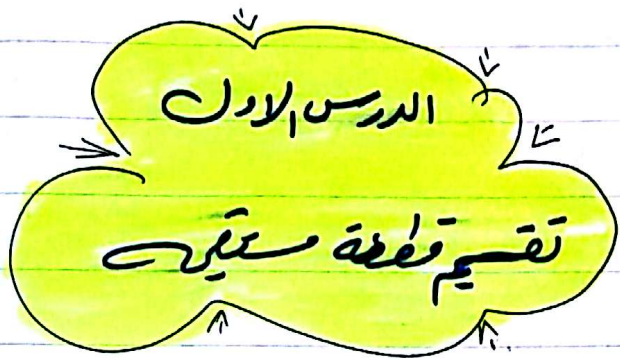 الدرس الاول
تقسيم قطعة مستقيمة